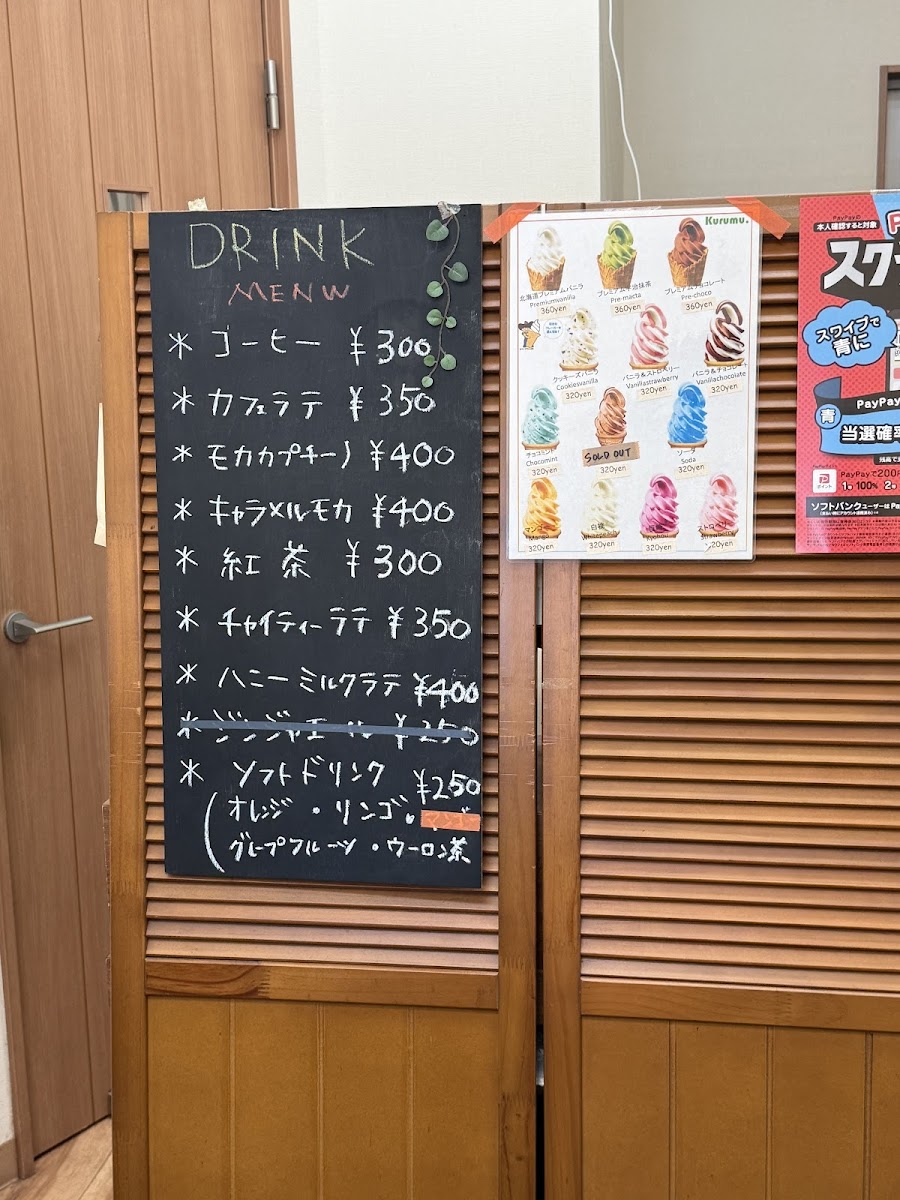 DRINK
MENU
* コーヒー ¥300
* カフェラテ ¥350
* モカカプチーノ ¥400
* キャラメルモカ ¥400
* 紅茶 ¥300
* チャイティーラテ ¥350
* ハニーミルクラテ ¥400
* ジンジャエール ¥250
* ソフトドリンク ¥250
(オレンジ・リンゴ・
グレープフルーツ・ウーロン茶
Kurumu.
北海道プレミアムバニラ
Premiumvanilla
360yen
プレミアム宇治抹茶
Pre-macta
360yen
プレミアムチョコレート
Pre-choco
360yen
クッキーズバニラ
Cookiesvanilla
320yen
バニラ&ストロベリー
Vanillastrawberry
320yen
バニラ&チョコレート
Vanillachocolate
320yen
チョコミント
Chocomint
320yen
SOLD OUT
ソーダ
Soda
320yen
マンゴー
Mango
320yen
白桃
320yen
320yen
ストロベリー
320yen
PayPayの
本人確認すると対象
スク
スワイプで
青に
PayPay
青
当選確率
PayPayで200円
ポイント
1等100% 2等
ソフトバンクユーザーは